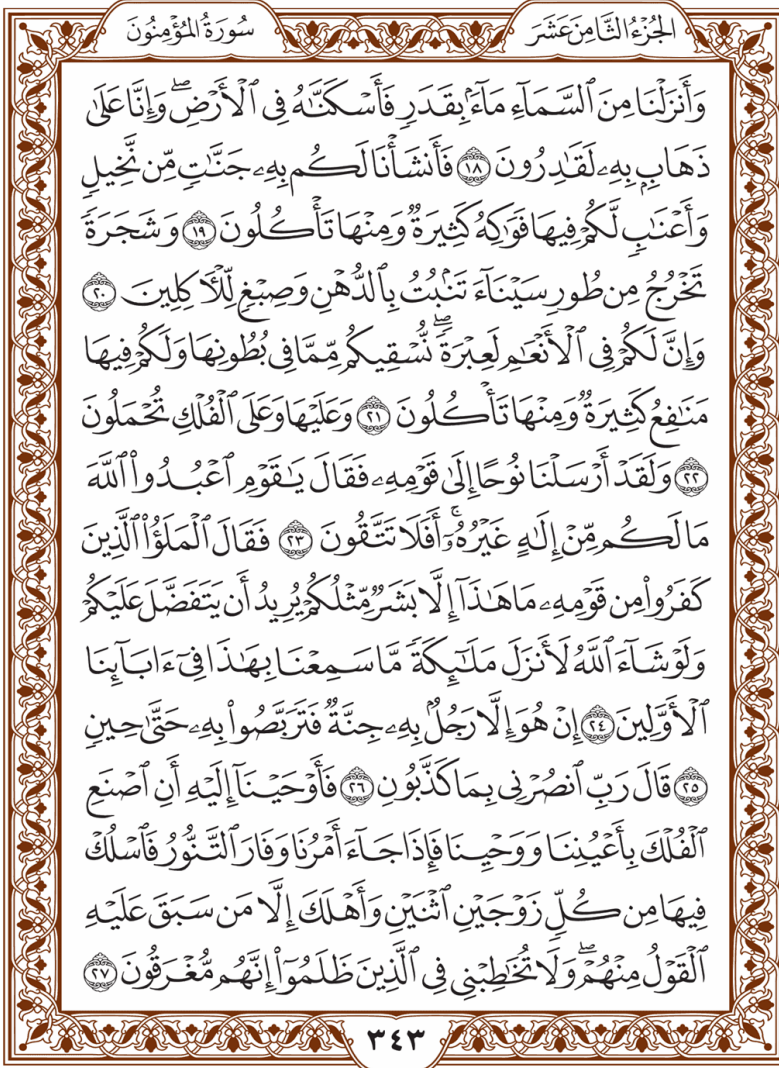 الجُزْءُ الثَّامِنَ عَشَرَ
سُورَةُ المُؤْمِنُونَ
وَأَنزَلْنَا مِنَ ٱلسَّمَآءِ مَآءَۢ بِقَدَرٍ فَأَسْكَنَّـٰهُ فِى ٱلْأَرْضِۖ وَإِنَّا عَلَىٰ
ذَهَابِۭ بِهِۦ لَقَـٰدِرُونَ ١٨ فَأَنشَأْنَا لَكُم بِهِۦ جَنَّـٰتٍ مِّن نَّخِيلٍ
وَأَعْنَـٰبٍ لَّكُمْ فِيهَا فَوَٰكِهُ كَثِيرَةٌ وَمِنْهَا تَأْكُلُونَ ١٩ وَشَجَرَةً
تَخْرُجُ مِن طُورِ سَيْنَآءَ تَنۢبُتُ بِٱلدُّهْنِ وَصِبْغٍ لِّلْـَٔاكِلِينَ ٢٠
وَإِنَّ لَكُمْ فِى ٱلْأَنْعَـٰمِ لَعِبْرَةًۖ نُّسْقِيكُم مِّمَّا فِى بُطُونِهَا وَلَكُمْ فِيهَا
مَنَـٰفِعُ كَثِيرَةٌ وَمِنْهَا تَأْكُلُونَ ٢١ وَعَلَيْهَا وَعَلَى ٱلْفُلْكِ تُحْمَلُونَ
٢٢ وَلَقَدْ أَرْسَلْنَا نُوحًا إِلَىٰ قَوْمِهِۦ فَقَالَ يَـٰقَوْمِ ٱعْبُدُوا۟ ٱللَّهَ
مَا لَكُم مِّنْ إِلَـٰهٍ غَيْرُهُۥٓۚ أَفَلَا تَتَّقُونَ ٢٣ فَقَالَ ٱلْمَلَؤُا۟ ٱلَّذِينَ
كَفَرُوا۟ مِن قَوْمِهِۦ مَا هَـٰذَآ إِلَّا بَشَرٌ مِّثْلُكُمْ يُرِيدُ أَن يَتَفَضَّلَ عَلَيْكُمْ
وَلَوْ شَآءَ ٱللَّهُ لَأَنزَلَ مَلَـٰٓئِكَةً مَّا سَمِعْنَا بِهَـٰذَا فِىٓ ءَابَآئِنَا
ٱلْأَوَّلِينَ ٢٤ إِنْ هُوَ إِلَّا رَجُلٌۢ بِهِۦ جِنَّةٌ فَتَرَبَّصُوا۟ بِهِۦ حَتَّىٰ حِينٍ
٢٥ قَالَ رَبِّ ٱنصُرْنِى بِمَا كَذَّبُونِ ٢٦ فَأَوْحَيْنَآ إِلَيْهِ أَنِ ٱصْنَعِ
ٱلْفُلْكَ بِأَعْيُنِنَا وَوَحْيِنَا فَإِذَا جَآءَ أَمْرُنَا وَفَارَ ٱلتَّنُّورُ فَٱسْلُكْ
فِيهَا مِن كُلٍّ زَوْجَيْنِ ٱثْنَيْنِ وَأَهْلَكَ إِلَّا مَن سَبَقَ عَلَيْهِ
ٱلْقَوْلُ مِنْهُمْۖ وَلَا تُخَـٰطِبْنِى فِى ٱلَّذِينَ ظَلَمُوٓا۟ إِنَّهُم مُّغْرَقُونَ ٢٧
٣٤٣